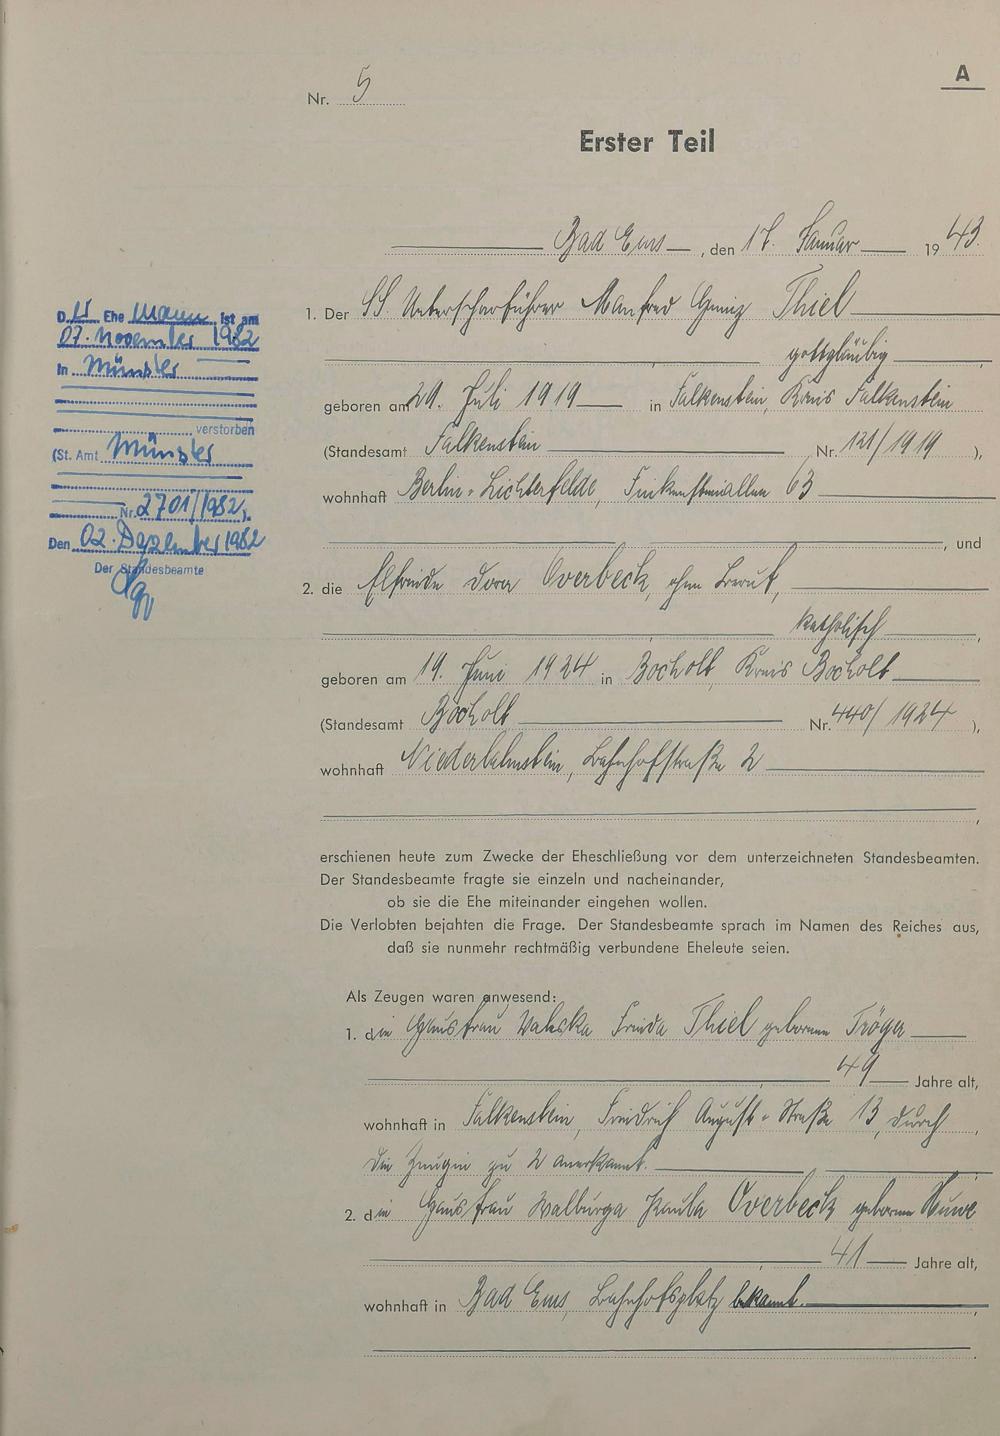 A
Nr. 5
Erster Teil
Bad Ems, den 17. Januar 1943.
1. Der SS Unterscharführer Manfred Heinz Thiel
gottgläubig
geboren am 29. Juli 1919 in Falkenstein, Kreis Falkenstein
(Standesamt Falkenstein Nr. 121/1919 ),
wohnhaft Berlin-Lichterfelde, Finkensteinallee 63
, und
2. die Elfriede Dora Overbeck, ohne Beruf,
katholisch,
geboren am 19. Juni 1924 in Bocholt, Kreis Bocholt
(Standesamt Bocholt Nr. 440/1924 ),
wohnhaft Niederlahnstein, Bahnhofstraße 2
,
erschienen heute zum Zwecke der Eheschließung vor dem unterzeichneten Standesbeamten.
Der Standesbeamte fragte sie einzeln und nacheinander,
ob sie die Ehe miteinander eingehen wollen.
Die Verlobten bejahten die Frage. Der Standesbeamte sprach im Namen des Reiches aus,
daß sie nunmehr rechtmäßig verbundene Eheleute seien.
Als Zeugen waren anwesend:
1. die Hausfrau Valeska Frieda Thiel geborene Tröger
, 49 Jahre alt,
wohnhaft in Falkenstein, Friedrich August-Straße 13, durch
die Zeugin zu 2 anerkannt.
2. die Hausfrau Walburga Paula Overbeck geborene
, 41 Jahre alt,
wohnhaft in Bad Ems, Bahnhofsplatz bekannt.
Der Ehe Mann ist am
07. November 1982
in Münster
verstorben
(St. Amt Münster
Nr. 2701/1982).
Den 02. Dezember 1982
Der Standesbeamte